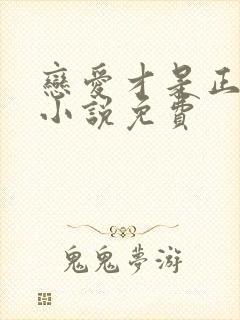 戀愛才是正
小說免費
鬼鬼夢游